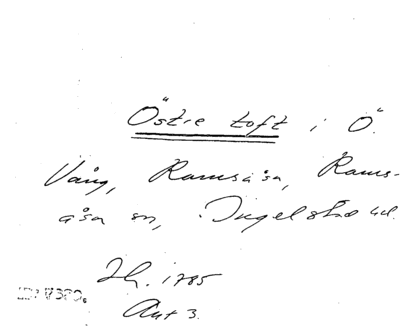 Östre toft i Ö.
Vång, Ramsåsa, Rams-
åsa sn, Ingelstad hd.
Sk. 1785
Akt 3.